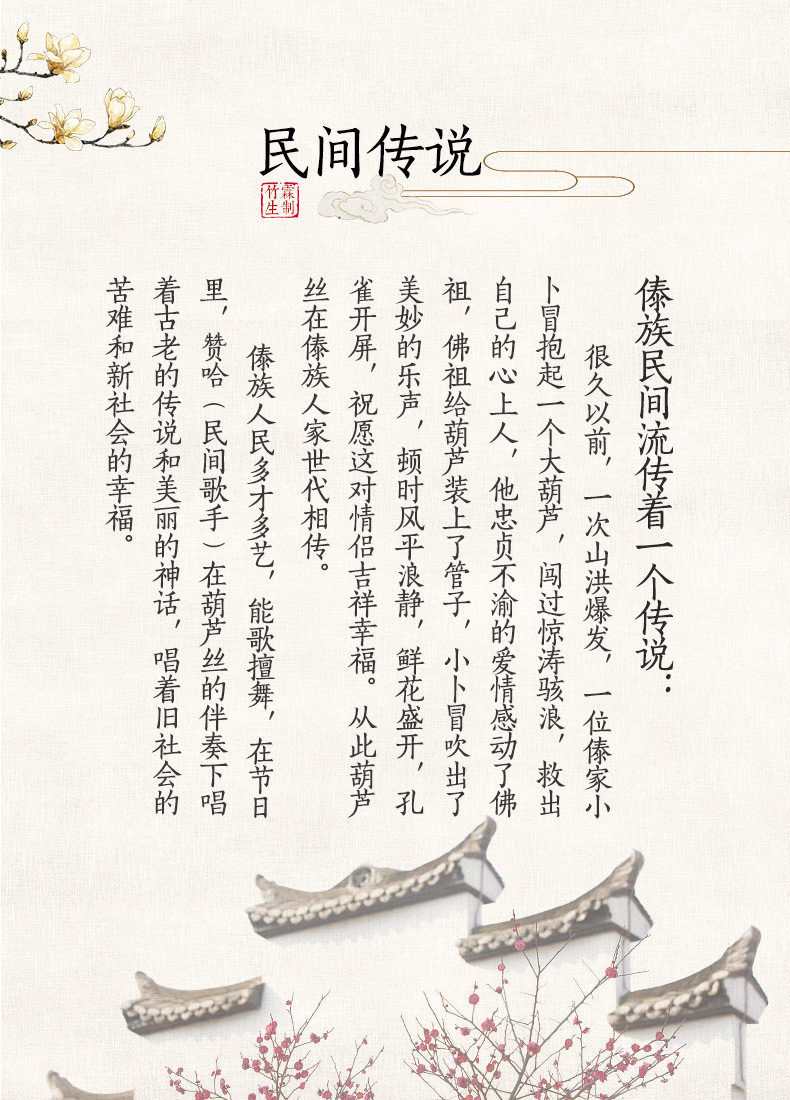 民间传说
霖制
竹生
傣族民间流传着一个传说：
很久以前，一次山洪爆发，一位傣家小
卜冒抱起一个大葫芦，闯过惊涛骇浪，救出
自己的心上人，他忠贞不渝的爱情感动了佛
祖，佛祖给葫芦装上了管子，小卜冒吹出了
美妙的乐声，顿时风平浪静，鲜花盛开，孔
雀开屏，祝愿这对情侣吉祥幸福。从此葫芦
丝在傣族人家世代相传。
傣族人民多才多艺，能歌擅舞，在节日
里，赞哈（民间歌手）在葫芦丝的伴奏下唱
着古老的传说和美丽的神话，唱着旧社会的
苦难和新社会的幸福。